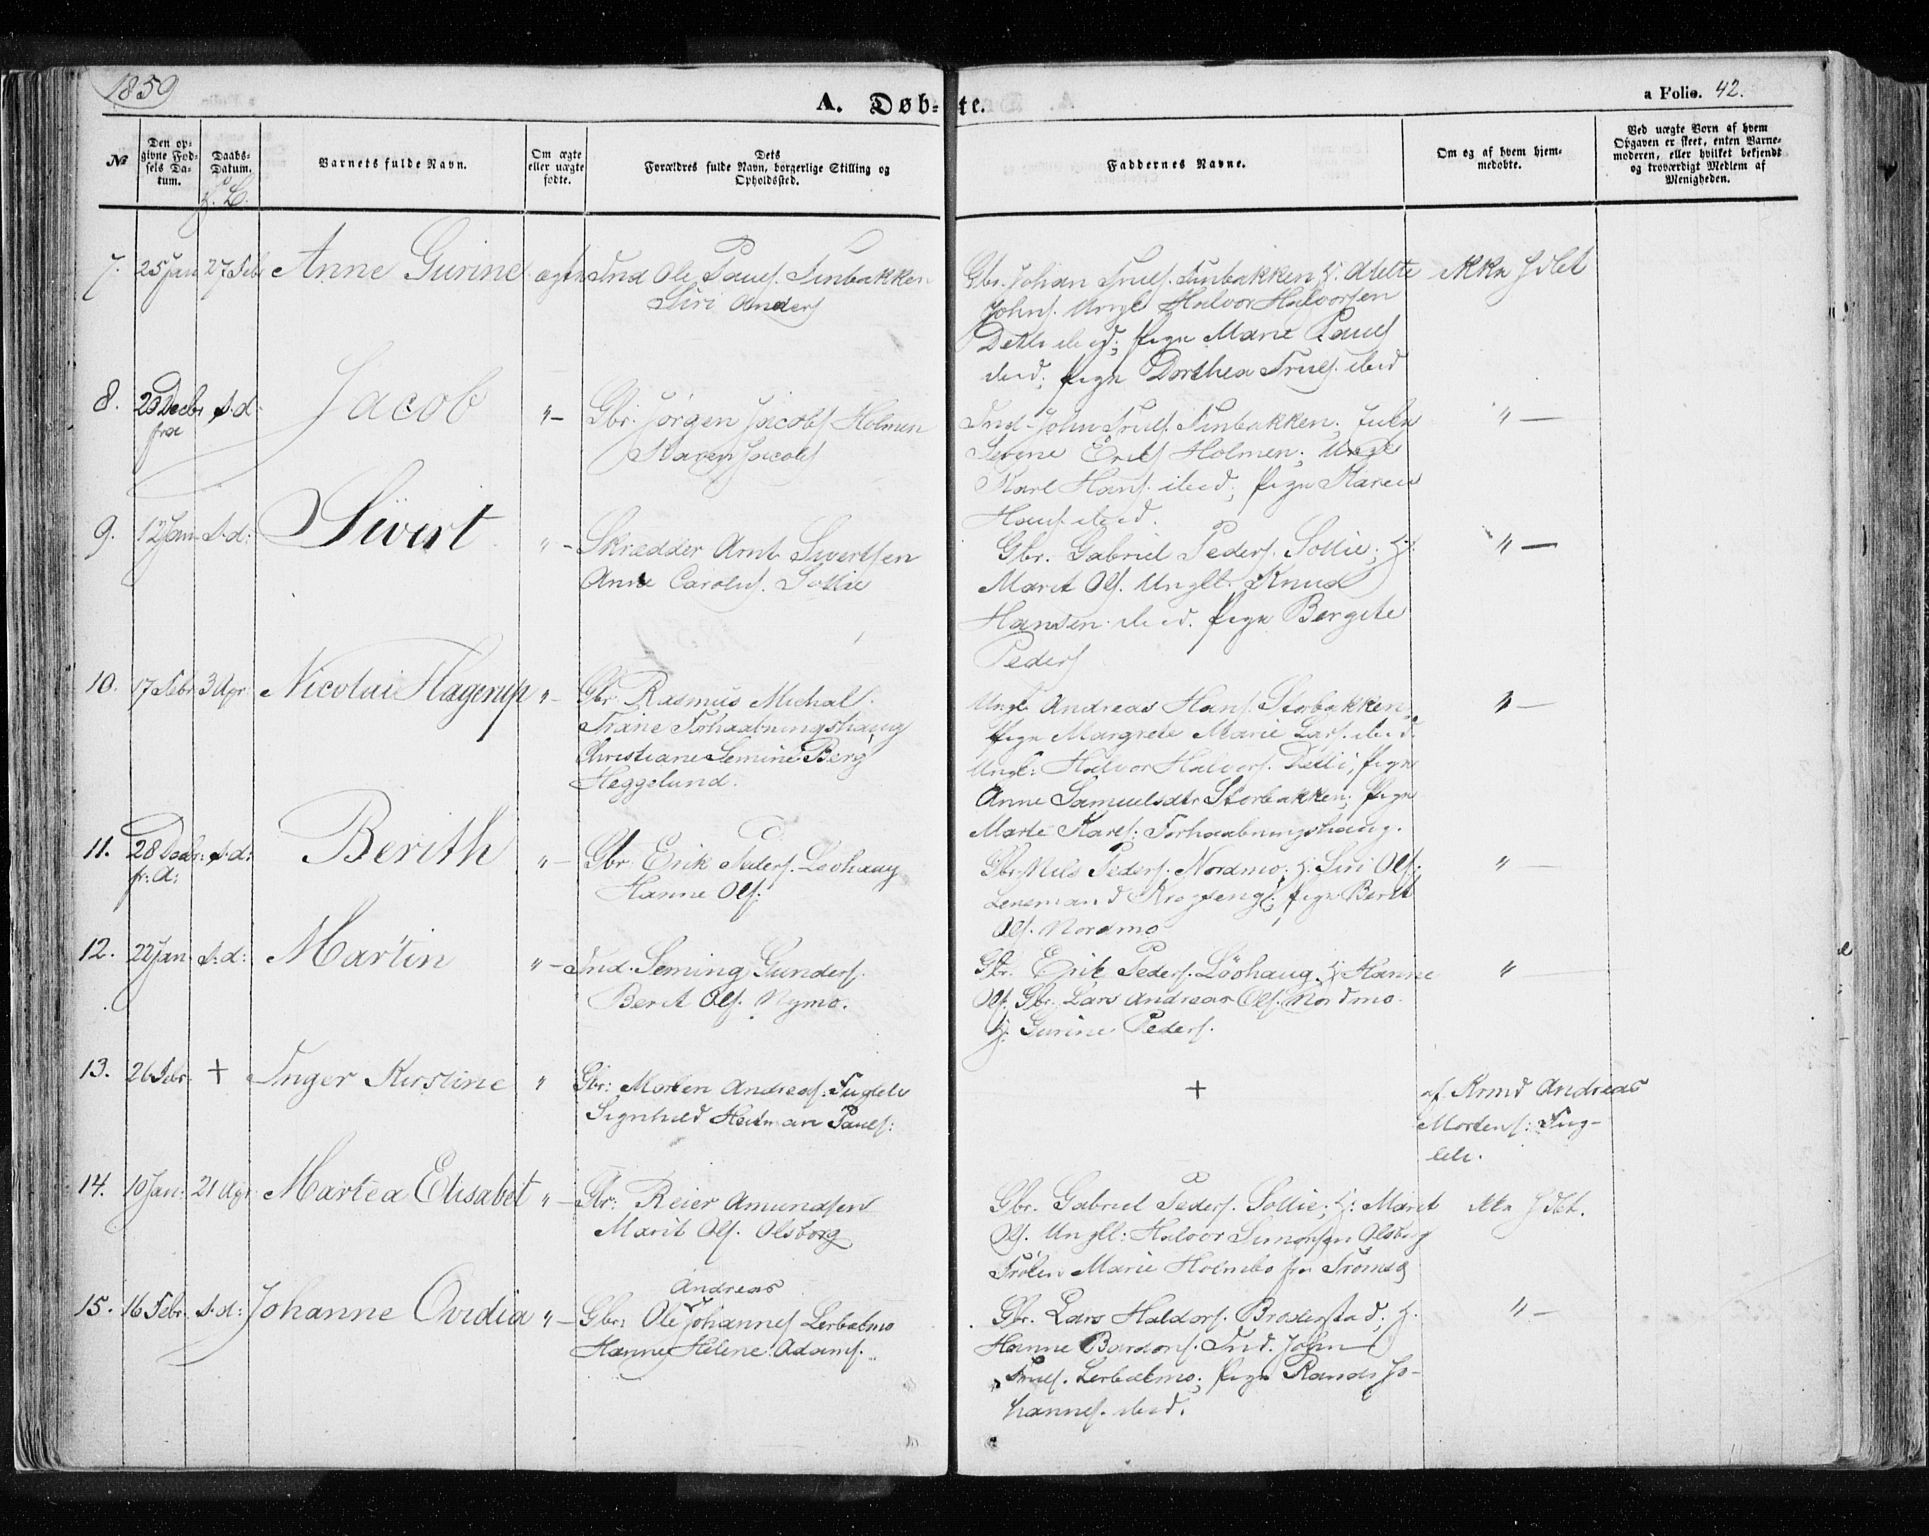 1859
A. Døb-te.
a Folio. 42.
№
Den op-
givne Fød-
sels Da-
tum.
Daabs-
Datum.
Barnets fulde Navn.
Om ægte
eller uægte
fødte.
Dets
Forældres fulde Navn, borgerlige Stilling og
Opholdssted.
Faddernes Navne.
Om og af hvem hjem-
medøbte.
Ved uægte Børn af hvem
Opgaven er skeet, enten Barne-
moderen, eller hvilket bekjendt
og troværdigt Medlem af
Menigheden.
7. 25 Jan 27 Feb Anne Gurine ægte Ind Ole Pauls. Finbakken
Siri Anders
Gbr. Johan Truls. Finbakken
Johns. Ungk Halvor Halvorsen
Detli ibid; Pige Marie Pauls
ibid; Pige Dorthea Truls. ibid
8. 20 Decbr s. d: Jacob "– Gbr. Jørgen Jacobs Holmen
Maren Jacobs
Ind. John Truls. Finbakken;
Serene Eriks Holmen; Ungk
Karl Hans. ibid; Pige Maren
Hans. ibid.
" –
9. 12 Jan s. d: Sivert "– Skrædder Arnt Sivertsen
Anne Carolus. Sollie
Gbr. Gabriel Peders. Sollie; H:
Marit Ols. Ungk. Knud
Hansen ibid. Pige Bergite
Peders
" –
10. 17 Febr 3 Apr Nicolai Hagerup "– Gbr. Rasmus Michal
Trane Forhaabningshaug
Christiane Semine Berg
Heggelund.
Ungk Andreas Hans. Storbakken,
Pige Margrete Marie Lars. ibid.
Ungk: Halvor Halvors. Detli; Pige
Anne Samuelsdtr Storbakken; Pige
Marte Karls: Forhaabningshaug.
" –
11. 28 Decbr: s. d: Berith "– Gbr Erik Peders. Løvhaug
fr. A:
Hanne Ols:
Gbr Nils Peders. Nordmo; H: Siri Ols:
Lensmand Krogseng; Pige Berit
Ols. Nordmo
" –
12. 22 Jan s. d: Martin "– Ind. Seming Gunders.
Berit Ols. Nymo.
Gbr. Erik Peders. Løvhaug; H: Hanne
Ols. Gbr. Lars Andreas Ols. Nordmo
H: Gurine Peders.
"
13. 26 Febr. + Inger Kirstine " Gbr: Morten Andreas: Fugleli
Signhild Heitman Pauls:
+
af Krmd Andreas
Mortens: Fug-
leli.
14. 10 Jan: 21 Apr: Martea Elisabet "– Gbr: Reier Amundsen
Marit Ols. Olsborg
Gbr. Gabriel Peders. Sollie; H: Marit
Ols. Ungk: Halvor Simonsen Olsborg
Frøken Marie Holmbo fra Tromsø
15. 16 Febr. s. d: Johanne Ovidia "– Gbr: Ole Johannes Lerbakmo
Andreas
Hanne Helene Adams.
Gbr. Lars Haldors. Brøderstad; H:
Hanne Bardons. Ind. John
Truls. Lerbakmo; Pige Randi Jo-
hannes. ibid.
" –